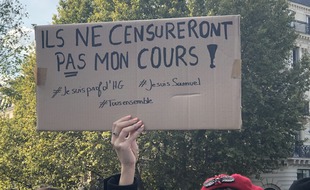 ILS NE CENSURERONT
PAS MON COURS !
#Je suis prof d'HG #Je suis Samuel
#Tous ensemble